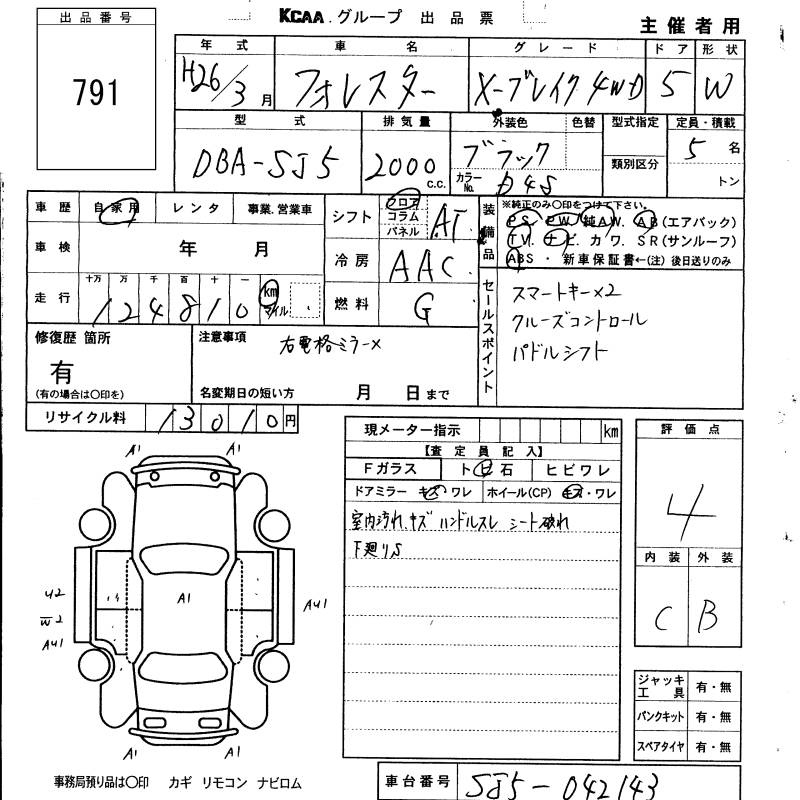 KCAA.グループ 出品票
主催者用
出品番号
791
年式 車名 グレード ドア 形状
H26/3月 フォレスター X-ブレイク 4WD 5 W
型式 排気量 外装色 色替 型式指定 定員・積載
DBA-SJ5 2000 c.c. ブラック 5名
カラーNo. D4S 類別区分 トン
車歴 自家用 レンタ 事業.営業車
車検 年 月
走行 十万 万 千 百 十 一
124810 km マイル
シフト フロア コラム パネル AT
冷房 AAC
燃料 G
装備品 ※純正のみ〇印をつけて下さい。
PS. PW. 純AW. AB(エアバック)
TV. ナビ. カワ. SR(サンルーフ)
ABS ・ 新車保証書←(注)後日送りのみ
セールスポイント
スマートキー×2
クルーズコントロール
パドルシフト
修復歴 箇所
有
(有の場合は〇印を)
注意事項
右電格ミラー×
名変期日の短い方 月 日まで
リサイクル料 13010円
現メーター指示 km
【査定員記入】
Fガラス トビ石 ヒビワレ
ドアミラー キズ・ワレ ホイール(CP) キズ・ワレ
室内汚れ、キズ ハンドルスレ シート破れ
下廻りS
評価点
4
内装 外装
C B
A1 A1
U2
W2
AU1
A1
AU1
A1 A1
ジャッキ工具 有・無
パンクキット 有・無
スペアタイヤ 有・無
事務局預り品は〇印 カギ リモコン ナビロム
車台番号 SJ5-042143